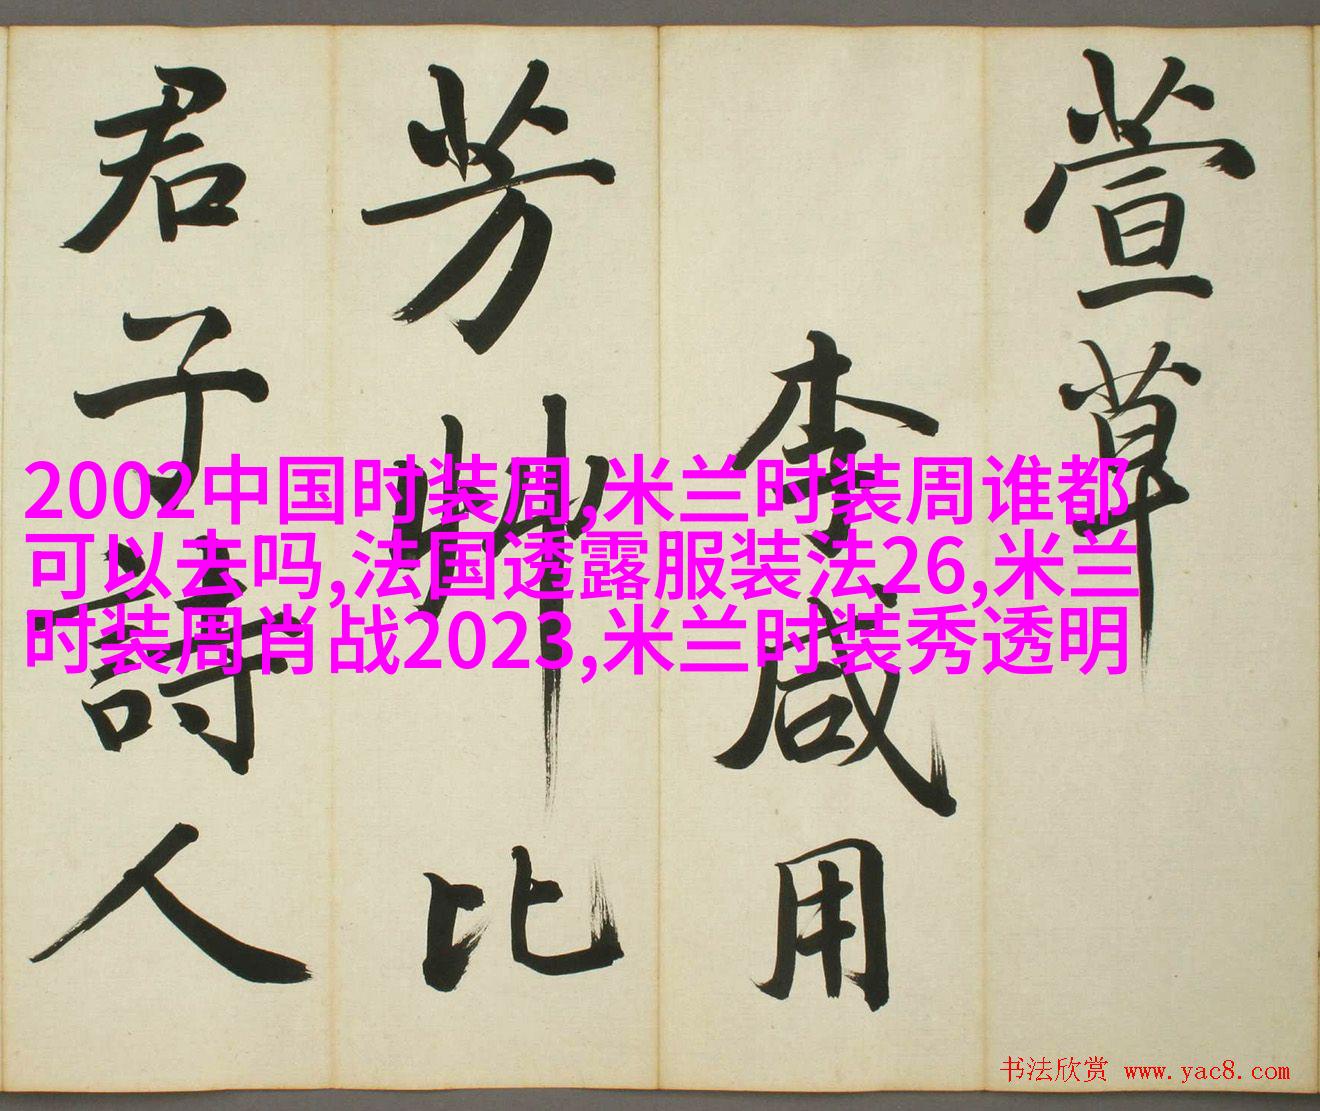 萱草
李咸用
芳艸比
君子詩人
2002中国时装周,米兰时装周谁都
可以去吗,法国透露服装法26,米兰
时装周肖战2023,米兰时装秀透明
书法欣赏 www.yac8.com